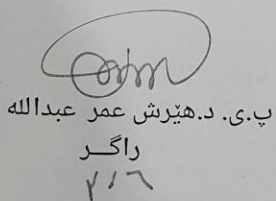 پ.ی. د.هێرش عمر عبدالله
راگـــر
٢/٦